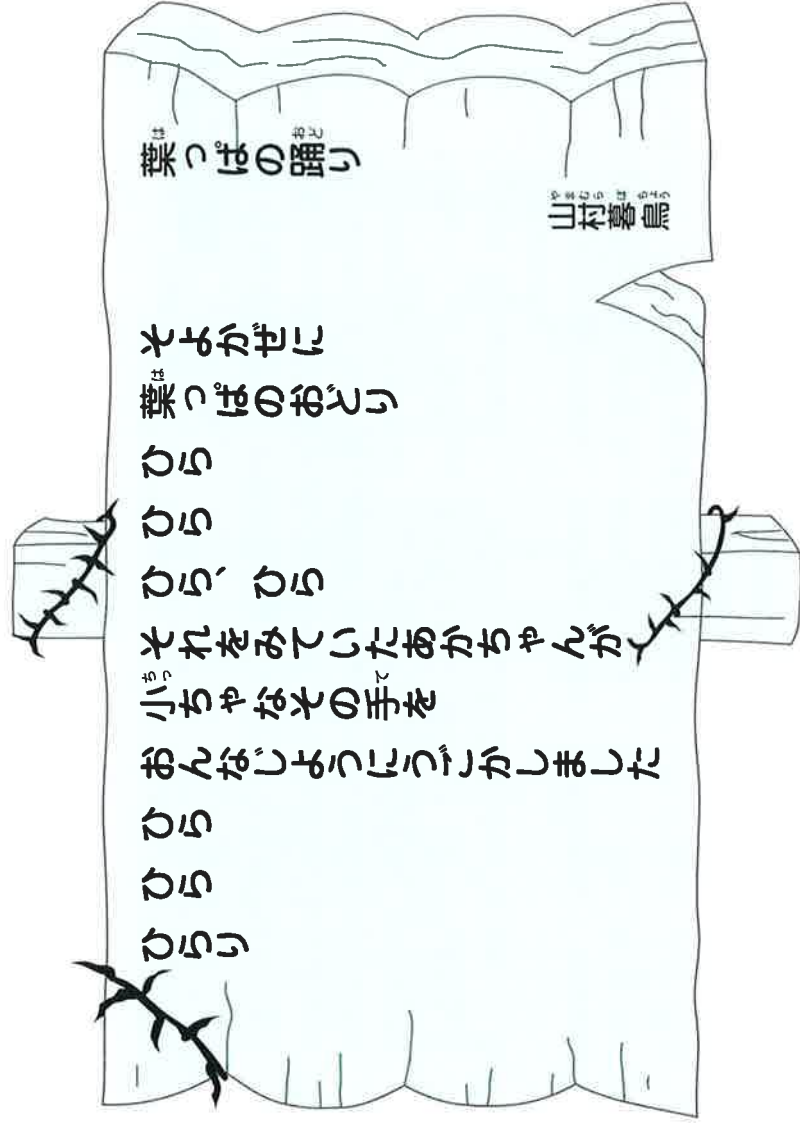 葉っぱの踊り
山村暮鳥
そよがぜに
葉っぱのおどり
ひら
ひら
ひら、ひら
それをみていたあかちゃんが
小ちゃなその手を
おんなじようにうごかしました
ひら
ひら
ひらり